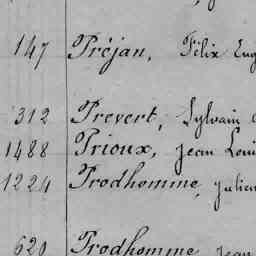 147 Préjan, Félix Eug
312 Prevert, Sylvain
1488 Prioux, Jean Loui
1224 Prodhomme, Julien
620 Prodhomme, Jean